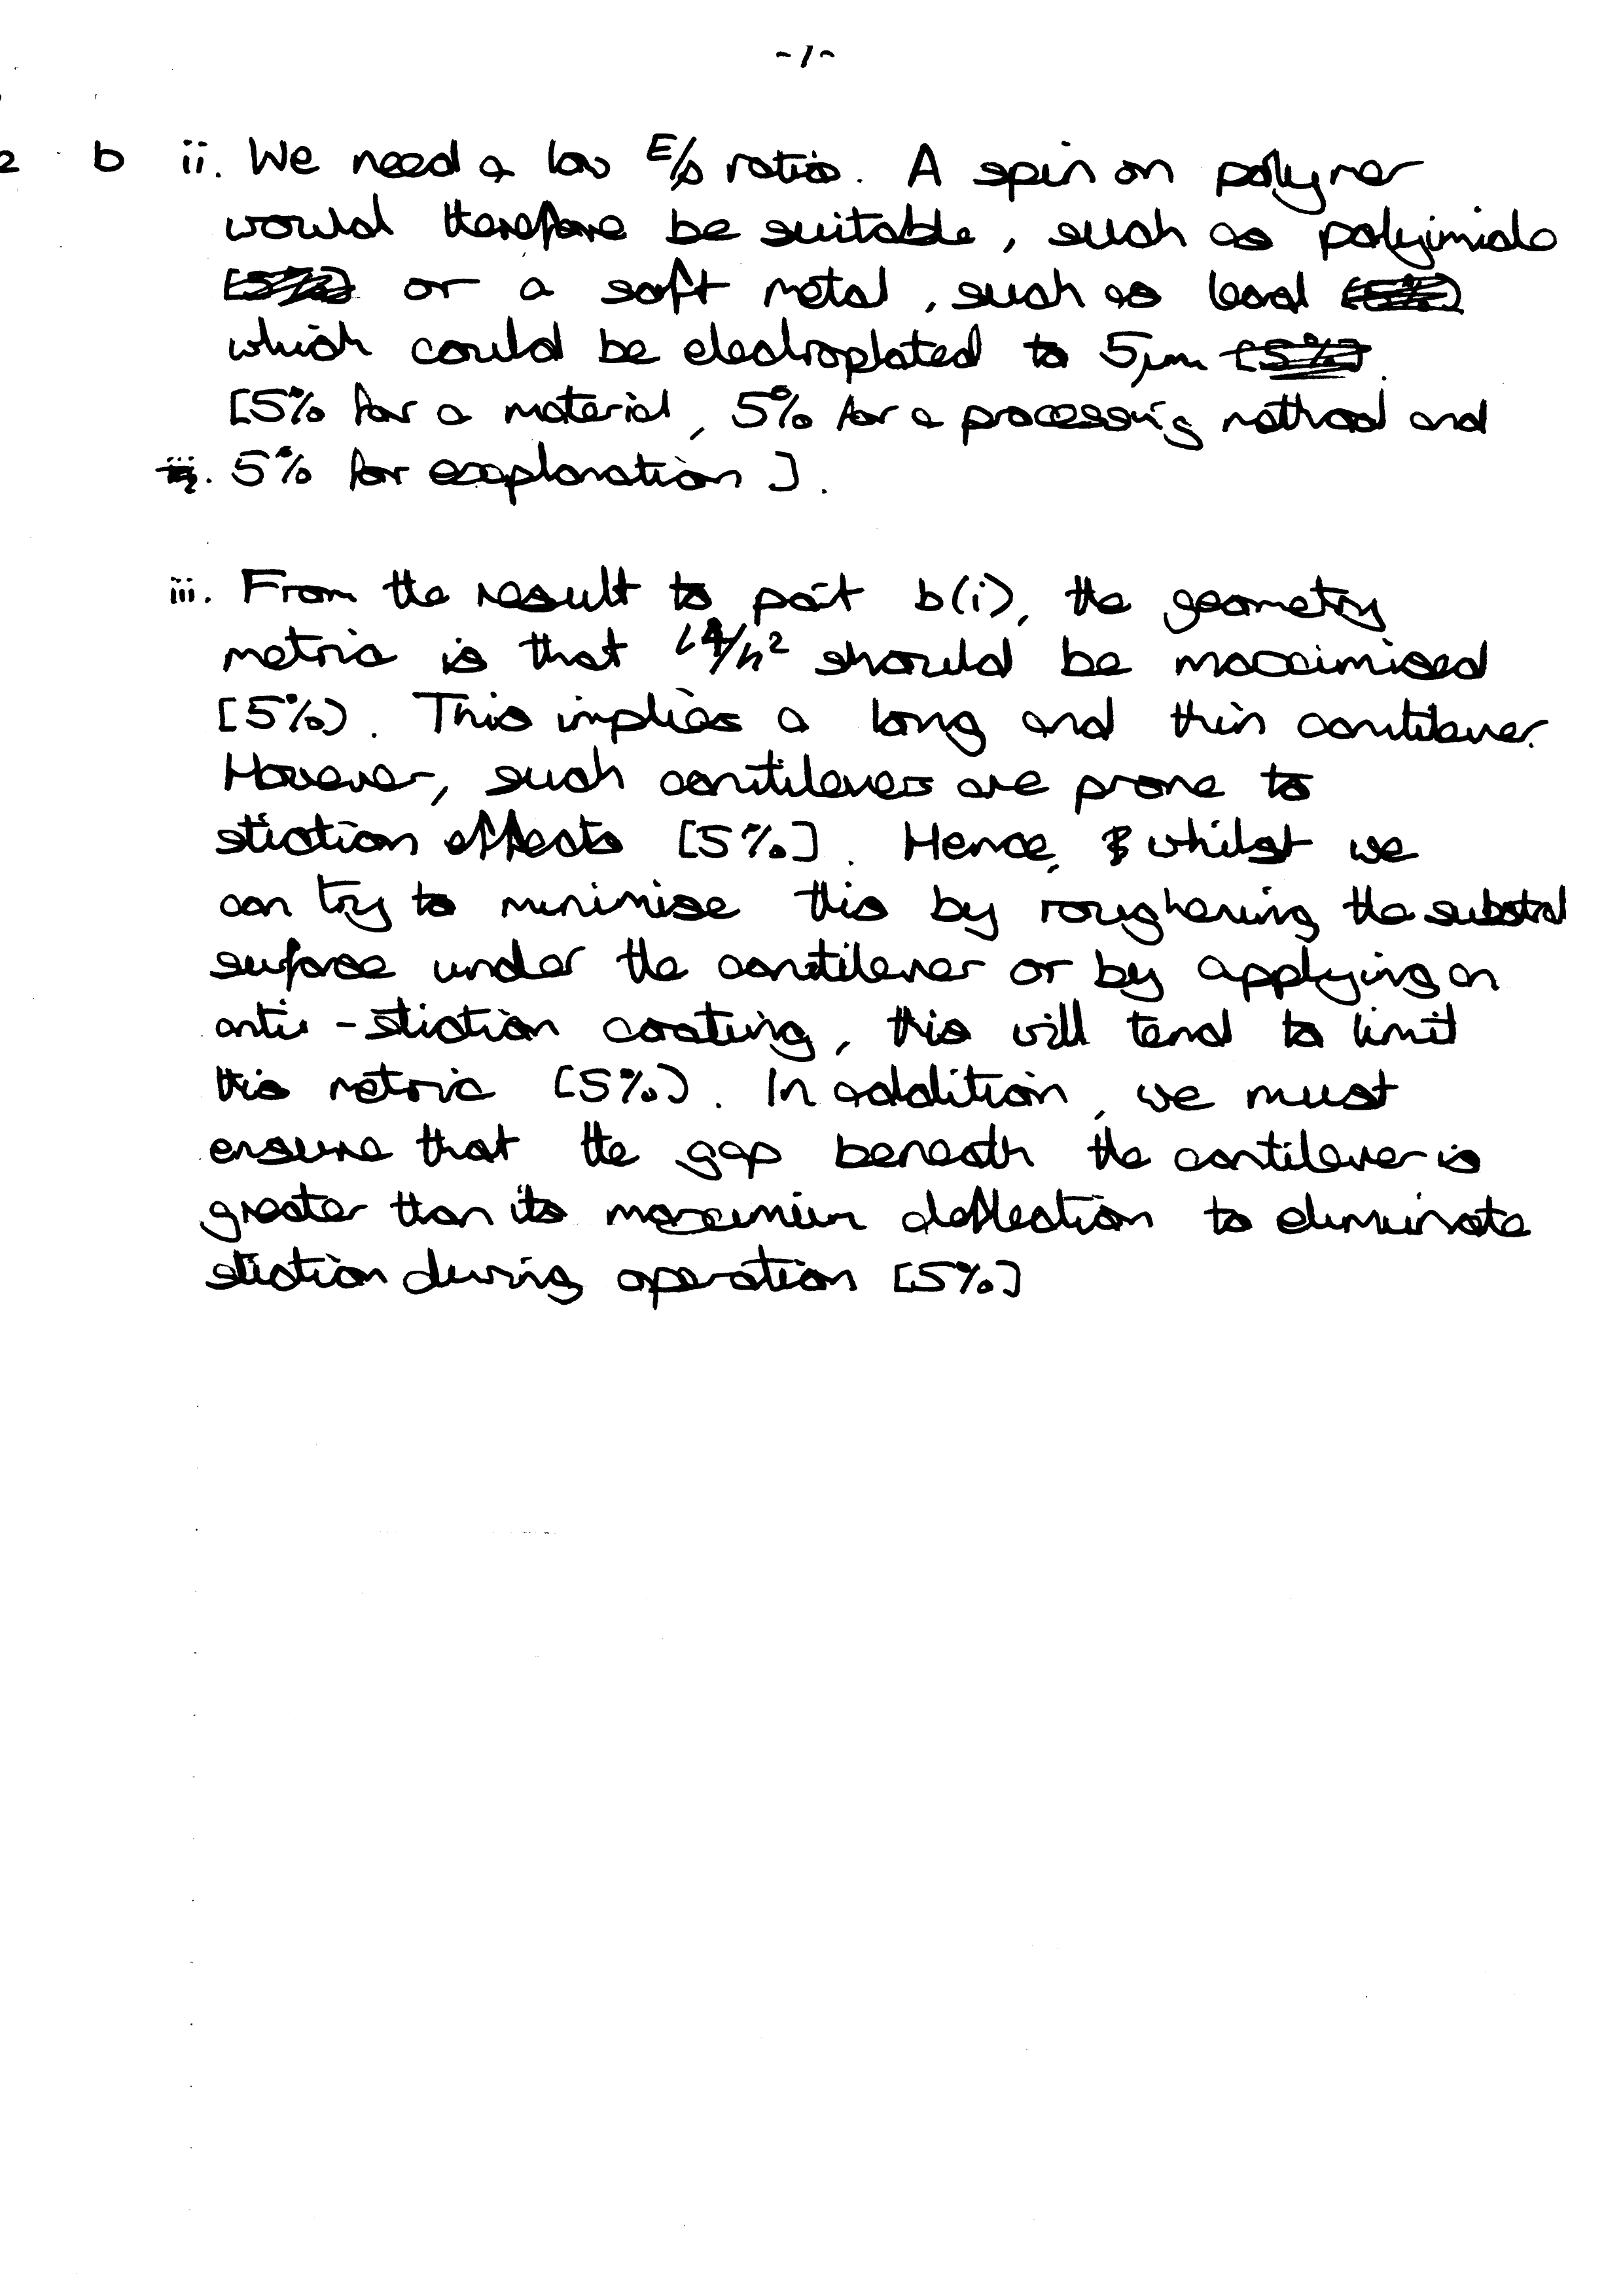 -7-
2 b ii. We need a low E/ρ ratio. A spin on polymer
would therefore be suitable, such as polyimide
or a soft metal, such as lead
which could be electroplated to 5μm
[5% for a material, 5% for a processing method and
5% for explanation].
iii. From the result to part b(i), the geometry
metric is that L⁴/h² should be maximised
[5%]. This implies a long and thin cantilever.
However, such cantilevers are prone to
stiction effects [5%]. Hence, whilst we
can try to minimise this by roughening the substrat
surface under the cantilever or by applying an
anti-stiction coating, this will tend to limit
this metric [5%]. In addition, we must
ensure that the gap beneath the cantilever is
greater than its maximum deflection to eliminate
stiction during operation [5%]